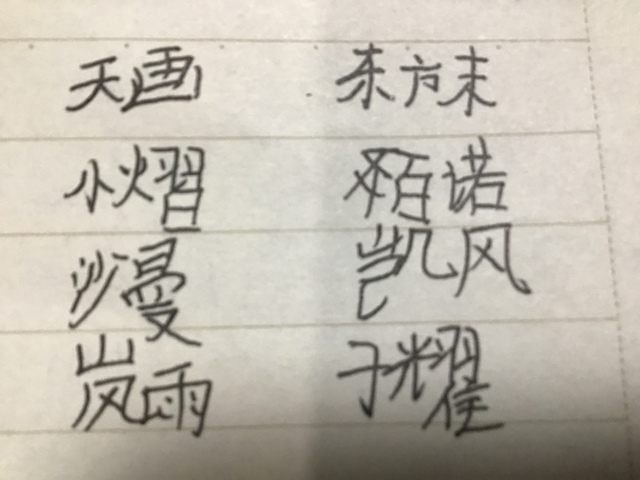 天画 东方末
小熠 百诺
沙曼 凯风
岚雨 子耀